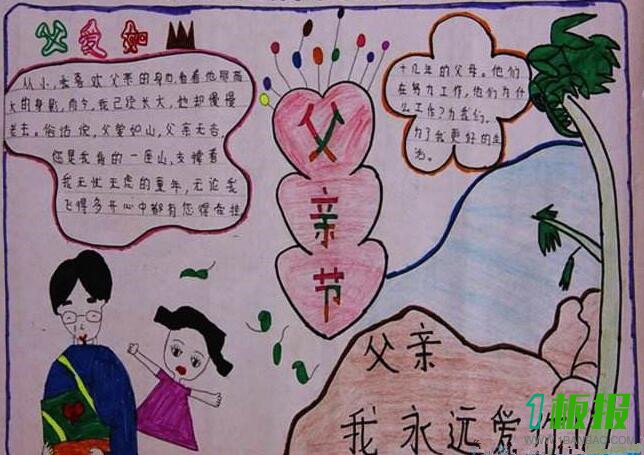 父爱如
从小,我喜欢父亲的身边看着他那高
大的身影,而今,我已经长大,他却慢慢
老去。俗话说,父爱如山,父亲无言,
您是我身的一座山,支撑着
我无忧无虑的童年,无论我
飞得多开心中都有您得在挂
父
亲
节
十几年的父母。他们
在努力工作,他们为什
么工作?为我们,
为了我更好的生
活。
父亲
我永远爱
1板报
WWW.1BANBAO.COM